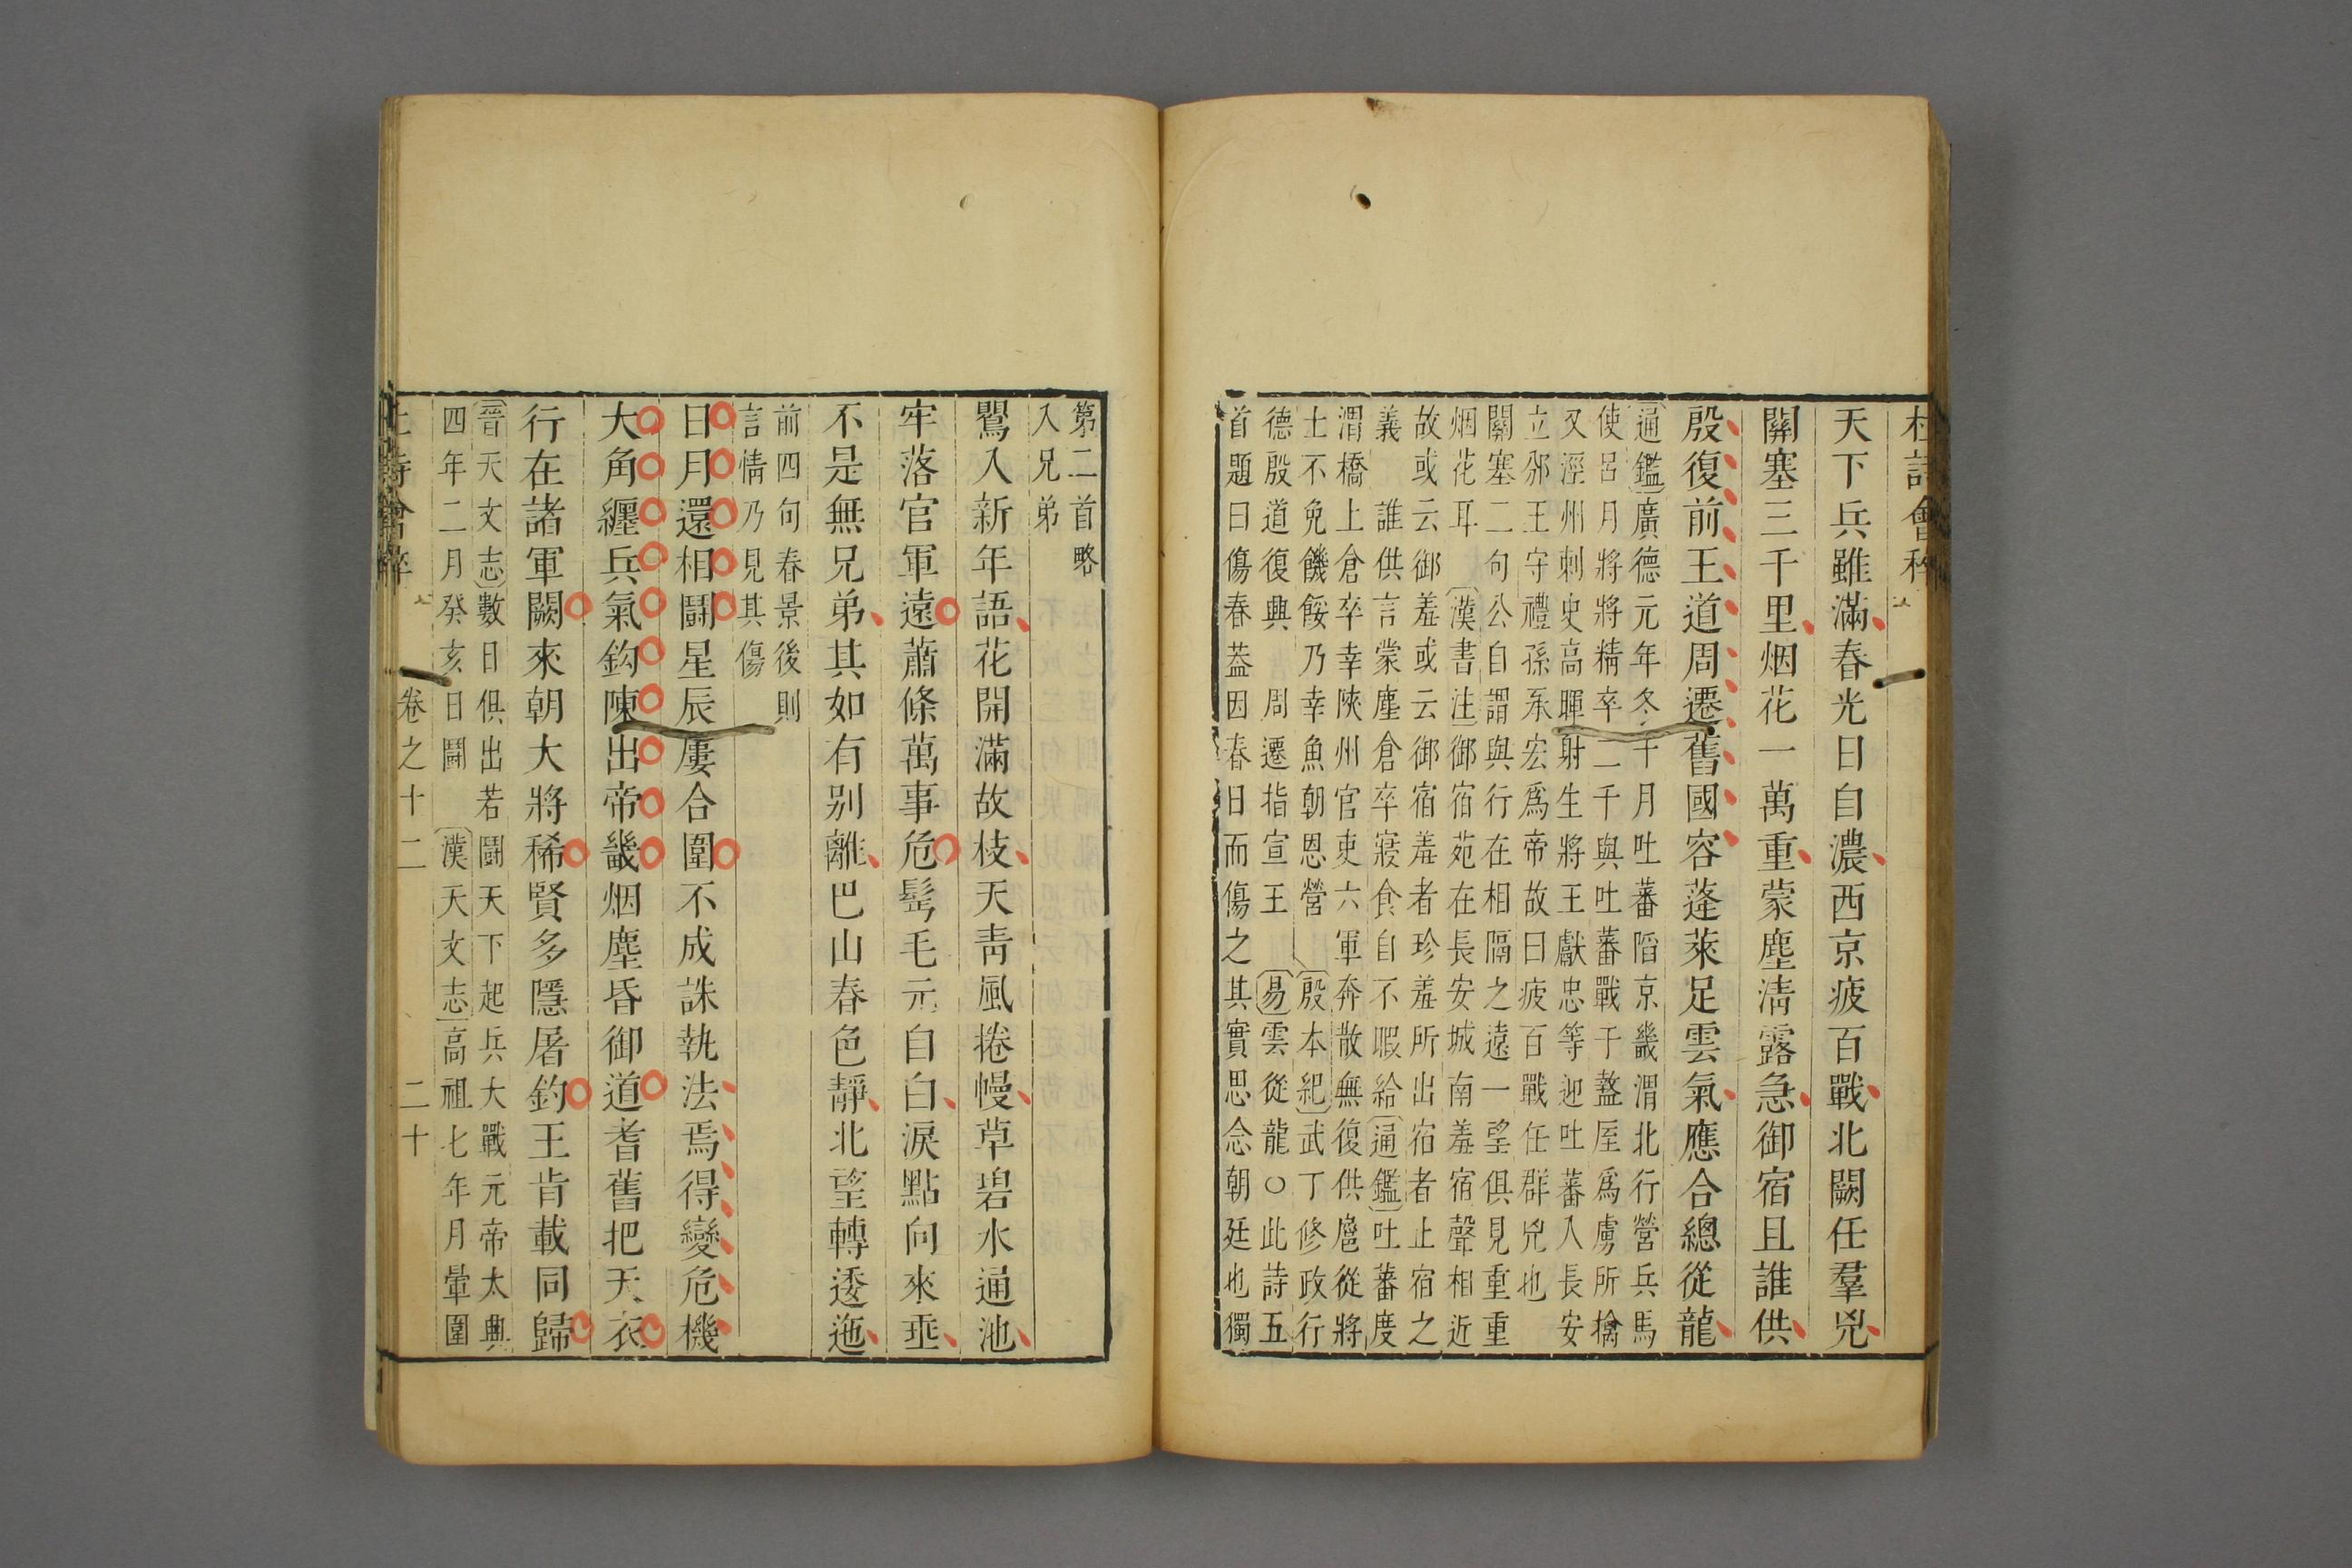 杜詩會稡
天下兵雖滿春光日自濃西京疲百戰北闕任羣兇
關塞三千里烟花一萬重蒙塵清露急御宿且誰供
殷復前王道周遷舊國容蓬萊足雲氣應合總從龍
通鑑廣德元年冬十月吐蕃陷京畿渭北行營兵馬
使呂月將將精卒二千與吐蕃戰于盩厔爲虜所擒
又涇州刺史高暉射生將王獻忠等迎吐蕃人入長安
立邠王守禮孫承宏爲帝故曰疲百戰任群兇也
關塞二句公自謂與行在相隔之遠一望俱見重重
烟花耳 漢書注御宿苑在長安城南羞宿聲相近
故或云御羞或云御宿羞者珍羞所出宿者止宿之
義 誰供言蒙塵倉卒寢食自不暇給通鑑吐蕃度
渭橋上倉卒幸陝州官吏六軍奔散無復供扈從將
士不免饑餒乃幸魚朝恩營 殷本紀武丁修政行
德殷道復興 周遷指宣王 易雲從龍○此詩五
首題曰傷春葢因春日而傷之其實思念朝廷也獨
第二首略
入兄弟
鸎入新年語花開滿故枝天靑風捲幔草碧水通池
牢落官軍遠蕭條萬事危髩毛元自白淚點向來垂
不是無兄弟其如有别離巴山春色靜北望轉逶迤
前四句春景後則
言情乃見其傷
日月還相鬪星辰屢合圍不成誅執法焉得變危機
大角纏兵氣鈎陳出帝畿烟塵昏御道耆舊把天衣
行在諸軍闕來朝大將稀賢多隱屠釣王肯載同歸
晉天文志數日俱出若鬪天下起兵大戰元帝太興
四年二月癸亥日鬪 漢天文志高祖七年月暈圍
杜詩會稡 卷之十二 二十